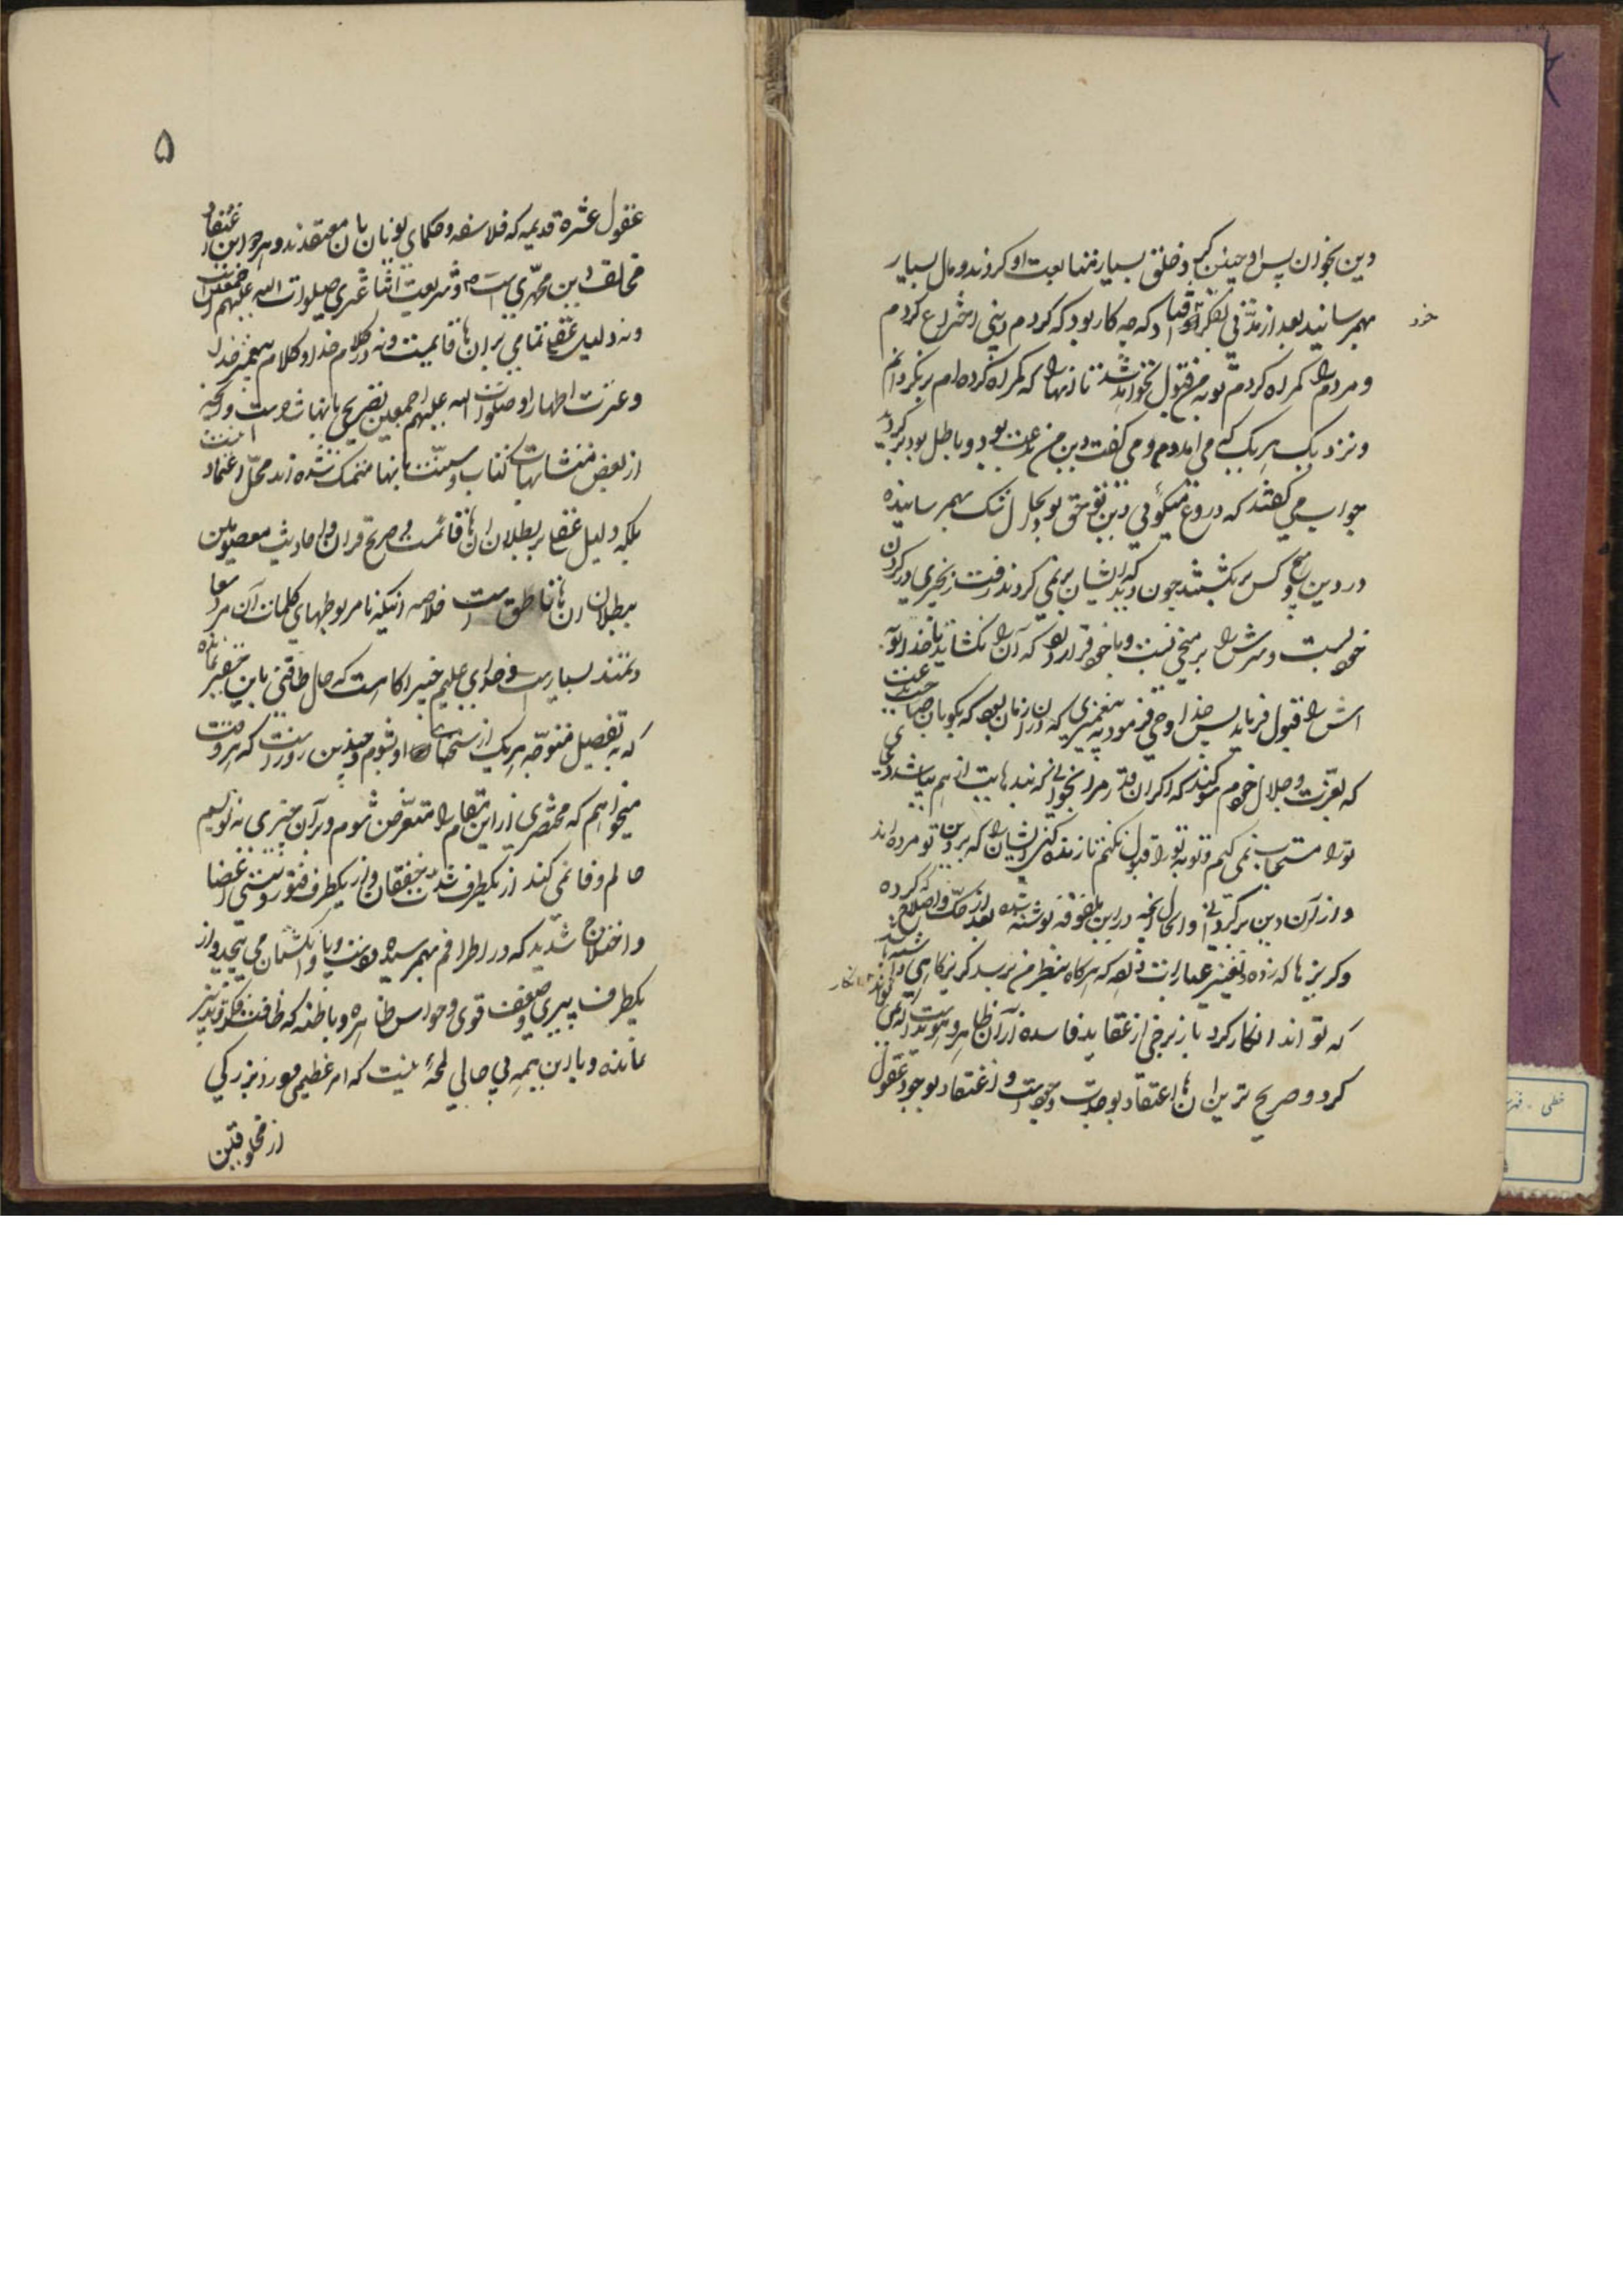 دین بخوان پس او چنین کرد و خلق بسیار متابعت او کردند و مال بسیار
بهمرسانید بعد از مدتی بفکر افتاد که چه کار بود که کردم دینی اختراع کردم
خود
و مردم را کمراه کردم توبه من قبول نخواهد شد تا آنها را که کمراه کرده‌ام برنکردانم
و نزدیک هر یک که می آمد و می گفت دین من بدعت بود و باطل بود برکردید
جواب می گفتند که دروغ میگوئی دین تو حق بود حال شک بهمرسانیده
در دین خود هیچ کس برنگشتند چون دید که ایشان برنمی کردند رفت زنجیری در کردن
خود بست و سرش را بر میخی بست و با خود قرار داد که آن را نکشاید تا خدا توبه
اش را قبول فرماید پس خدا وحی فرمود به پیغمبری که در آن زمان بود که بگو بآن صاحب بدعت
که بعزت و جلال خودم سوکند که اکر آن قدر مرا بخوانی که بندهایت از هم بپاشد دعای
تو را مستجاب نمی کنم و توبه تو را قبول نکنم تا زنده کنی ایشان را که بر دین تو مرده‌اند
و از آن دین برکردانی و الحال آنچه در این ملفوفه نوشته شده بعد از حک و اصلاح که کرده
و کریزها که زده و تغییر عبارات داده که هرکاه بنظر من برسد کریزکاهی داشته باشد
که تواند انکار کرد باز برخی از عقاید فاسده از آن ظاهر و هویداست که نمی تواند
انکار
کرد و صریح ترین آن ها اعتقاد بوحدت وجود است و اعتقاد بوجود عقول
۵
عقول عشره قدیمه که فلاسفه و حکمای یونان بآن معتقدند و هر دو این اعتقاد
مخالف دین محمدی است ص و شریعت اثنا عشری صلوات الله علیهم اجمعین است
و نه دلیل عقلی تمامی بر آن ها قایمست و نه در کلام خدا و کلام پیغمبر خدا
و عترت اطهار او صلوات الله علیهم اجمعین تصریحی بآنها شده است و آنچه
از بعض متشابهات کتاب و سنت بآنها متمسک شده‌اند محل اعتماد نیست
بلکه دلیل عقلی بر بطلان آن ها قائمست و صریح قرآن و احادیث معصومین
ببطلان آن ها ناطق است خلاصه اینکه نامربوطهای کلمات آن مرد
دغمند بسیار است و خدای علیم خبیر آکاه است که حال طاقتی باین حقیر نمانده
که به تفصیل متوجه هر یک از سخنان او بشوم و چندین روز است که هر وقت
میخواهم که مختصری از این مقام را متعرض شوم و بر آن چیزی بنویسم
حالم وفا نمی کند از یکطرف شدت خفقان و از یکطرف فتور و سستی اعضا
و اختلاج شدید که در اطرافم بهمرسیده دست و پا و انکشتان می پیچد و از
یکطرف پیری و ضعف قوی و حواس ظاهره و باطنه که طاقت فکر و تدبیر
نمانده و با این همه بی حالی لمحهٔ نیست که امر عظیمی مورد بزرکی
از مخلوقین